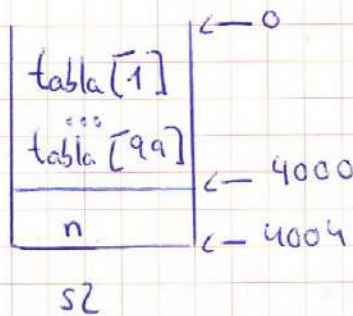 ← 0
tabla[1]
...
tabla[99]
← 4000
n
← 4004
s2